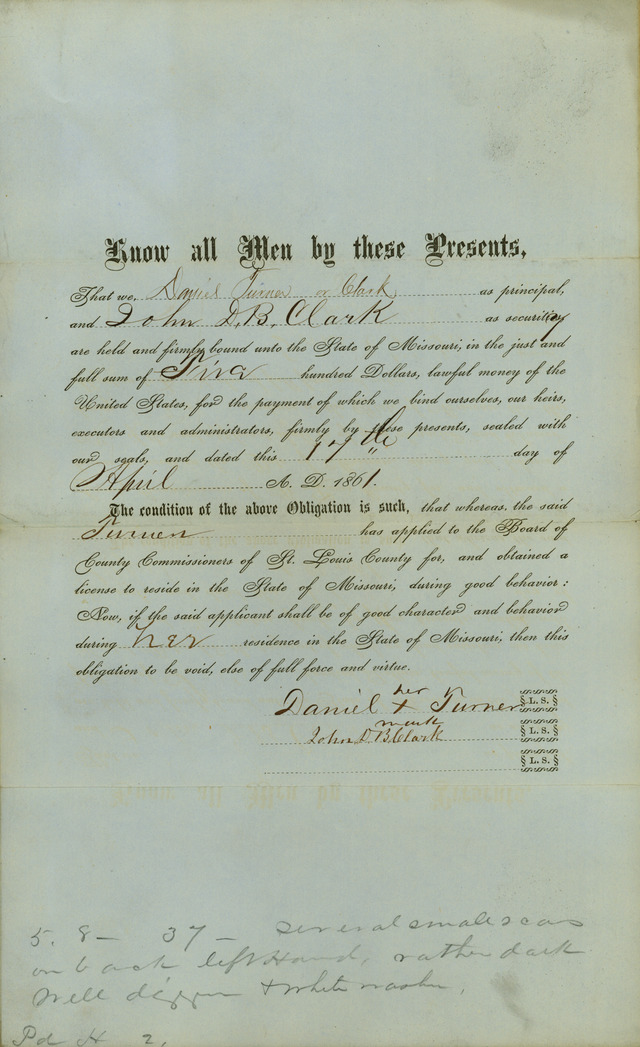 Know all Men by these Presents,
That we, Daniel Turner or Clark as principal,
and John D. B. Clark as security
are held and firmly bound unto the State of Missouri, in the just and
full sum of Five hundred Dollars, lawful money of the
United States, for the payment of which we bind ourselves, our heirs,
executors and administrators, firmly by these presents, sealed with
our seals, and dated this 17th day of
April A. D. 1861.
The condition of the above Obligation is such, that whereas, the said
Turner has applied to the Board of
County Commissioners of St. Louis County for, and obtained a
license to reside in the State of Missouri, during good behavior:
Now, if the said applicant shall be of good character and behavior
during her residence in the State of Missouri, then this
obligation to be void, else of full force and virtue.
her
Daniel + Turner § L. S. §
mark
John D. B. Clark § L. S. §
§ L. S. §
5. 8 - 37 - several small scars
on back left Hand, rather dark
Well digger + white washer.
Pd H 2,